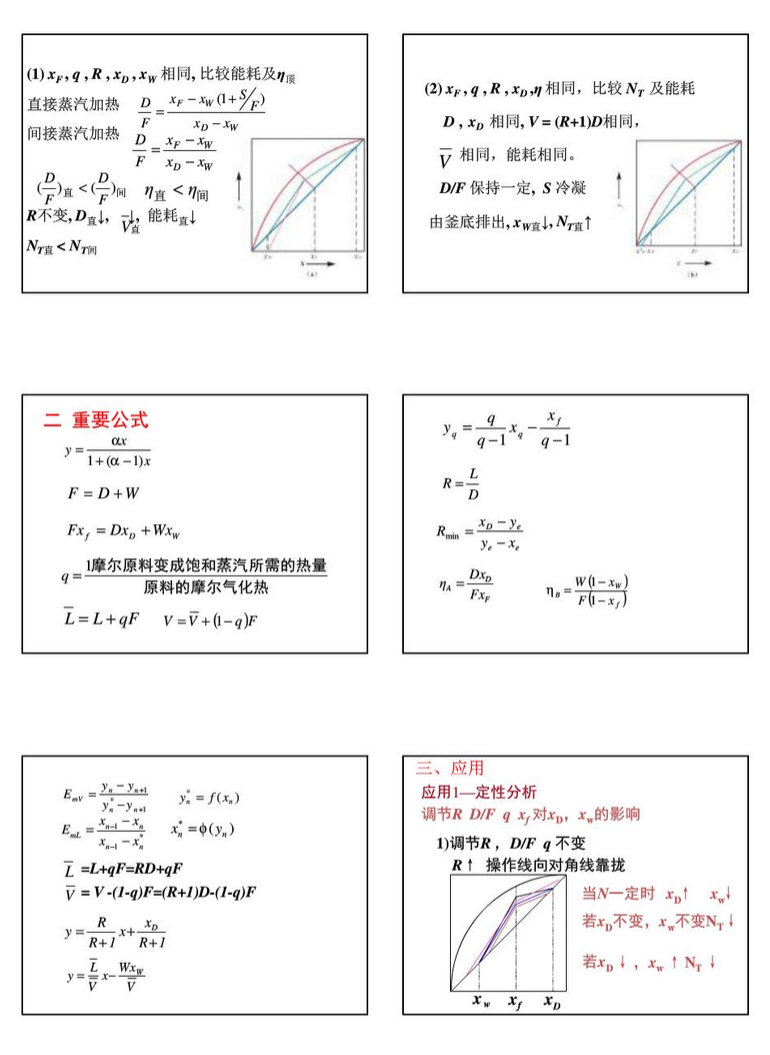 (1) x_F , q , R , x_D , x_W 相同, 比较能耗及η顶
直接蒸汽加热 D/F = (x_F − x_W (1 + S/F)) / (x_D − x_W)
间接蒸汽加热 D/F = (x_F − x_W) / (x_D − x_W)
(D/F)直 < (D/F)间 η直 < η间
R不变, D直↓, V̅直↓, 能耗直↓
N_T直 < N_T间
x
(a)
(2) x_F , q , R , x_D ,η 相同，比较 N_T 及能耗
D , x_D 相同, V = (R+1)D相同，
V̅ 相同，能耗相同。
D/F 保持一定, S 冷凝
由釜底排出, x_W直↓, N_T直↑
(b)
二 重要公式
y = αx / (1 + (α − 1)x)
F = D + W
Fx_f = Dx_D + Wx_W
q = 1摩尔原料变成饱和蒸汽所需的热量 / 原料的摩尔气化热
L̅ = L + qF V = V̅ + (1 − q)F
y_q = q/(q−1) x_q − x_f/(q−1)
R = L/D
R_min = (x_D − y_e) / (y_e − x_e)
η_A = Dx_D / Fx_F η_B = W(1 − x_W) / F(1 − x_f)
E_mV = (y_n − y_n+1) / (y_n^* − y_n+1) y_n^* = f(x_n)
E_mL = (x_n−1 − x_n) / (x_n−1 − x_n^*) x_n^* = ϕ(y_n)
L̅ =L+qF=RD+qF
V̅ = V -(1-q)F=(R+1)D-(1-q)F
y = R/(R+1) x + x_D/(R+1)
y = L̅/V̅ x − Wx_W/V̅
三、应用
应用1—定性分析
调节R D/F q x_f 对x_D，x_w的影响
1)调节R ，D/F q 不变
R↑ 操作线向对角线靠拢
当N一定时 x_D↑ x_w↓
若x_D不变，x_w不变N_T↓
若x_D↓，x_w↑N_T↓
x_w x_f x_D